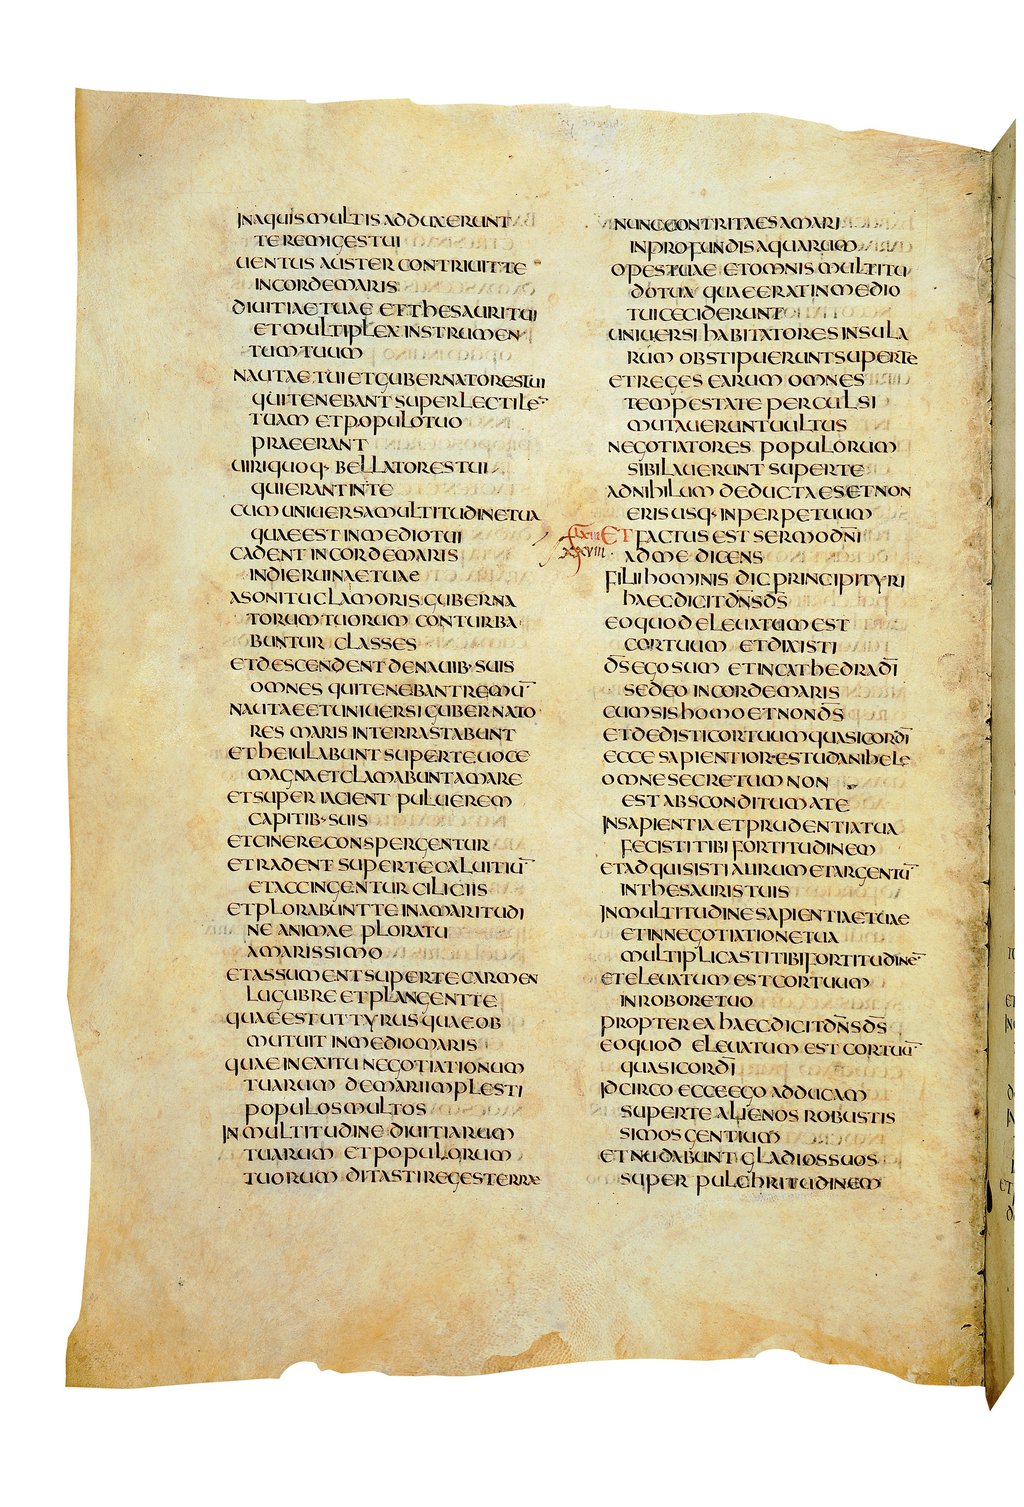 INAQUIS MULTIS ADDUXERUNT
TE REMIGES TUI
UENTUS AUSTER CONTRIUIT TE
IN CORDE MARIS
DIUITIAE TUAE ET THESAURI TUI
ET MULTIPLEX INSTRUMEN
TUM TUUM
NAUTAE TUI ET GUBERNATORES TUI
QUI TENEBANT SUPERLECTILE
TUAM ET POPULO TUO
PRAEERANT
UIRI QUOQ· BELLATORES TUI
QUI ERANT IN TE
CUM UNIUERSA MULTITUDINE TUA
QUAE EST IN MEDIO TUI
CADENT IN CORDE MARIS
IN DIE RUINAE TUAE
A SONITU CLAMORIS GUBERNA
TORUM TUORUM CONTURBA
BUNTUR CLASSES
ET DESCENDENT DE NAUIB· SUIS
OMNES QUI TENEBANT REMŪ
NAUTAE ET UNIUERSI GUBERNATO
RES MARIS IN TERRA STABUNT
ET HEIULABUNT SUPER TE UOCE
MAGNA ET CLAMABUNT AMARE
ET SUPERIACIENT PULUEREM
CAPITIB· SUIS
ET CINERE CONSPERGENTUR
ET RADENT SUPER TE CALUITIŪ
ET ACCINGENTUR CILICIIS
ET PLORABUNT TE IN AMARITUDI
NE ANIMAE PLORATU
AMARISSIMO
ET ASSUMENT SUPER TE CARMEN
LUGUBRE ET PLANGENT TE
QUAE EST UT TYRUS QUAE OB
MUTUIT IN MEDIO MARIS
QUAE IN EXITU NEGOTIATIONUM
TUARUM DE MARI IMPLESTI
POPULOS MULTOS
IN MULTITUDINE DIUITIARUM
TUARUM ET POPULORUM
TUORUM DITASTI REGES TERRAE
NUNC CONTRITA ES A MARI
IN PROFUNDIS AQUARUM
OPES TUAE ET OMNIS MULTITU
DO TUA QUAE ERAT IN MEDIO
TUI CECIDERUNT
UNIUERSI HABITATORES INSULA
RUM OBSTIPUERUNT SUPER TE
ET REGES EARUM OMNES
TEMPESTATE PERCULSI
MUTAUERUNT UULTUS
NEGOTIATORES POPULORUM
SIBILAUERUNT SUPER TE
AD NIHILUM DEDUCTA ES ET NON
ERIS USQ· IN PERPETUUM
ET FACTUS EST SERMO DN̄I
xxviii· AD ME DICENS
FILI HOMINIS DIC PRINCIPI TYRI
HAEC DICIT DN̄S D̄S
EO QUOD ELEUATUM EST
COR TUUM ET DIXISTI
D̄S EGO SUM ET IN CATHEDRA DĪ
SEDEO IN CORDE MARIS
CUM SIS HOMO ET NON D̄S
ET DEDISTI COR TUUM QUASI COR DĪ
ECCE SAPIENTIOR ES TU DANIHELE
OMNE SECRETUM NON
EST ABSCONDITUM A TE
IN SAPIENTIA ET PRUDENTIA TUA
FECISTI TIBI FORTITUDINEM
ET ADQUISISTI AURUM ET ARGENTŪ
IN THESAURIS TUIS
IN MULTITUDINE SAPIENTIAE TUAE
ET IN NEGOTIATIONE TUA
MULTIPLICASTI TIBI FORTITUDINĒ
ET ELEUATUM EST COR TUUM
IN ROBORE TUO
PROPTEREA HAEC DICIT DN̄S D̄S
EO QUOD ELEUATUM EST COR TUŪ
QUASI COR DĪ
IDCIRCO ECCE EGO ADDUCAM
SUPER TE ALIENOS ROBUSTIS
SIMOS GENTIUM
ET NUDABUNT GLADIOS SUOS
SUPER PULCHRITUDINEM